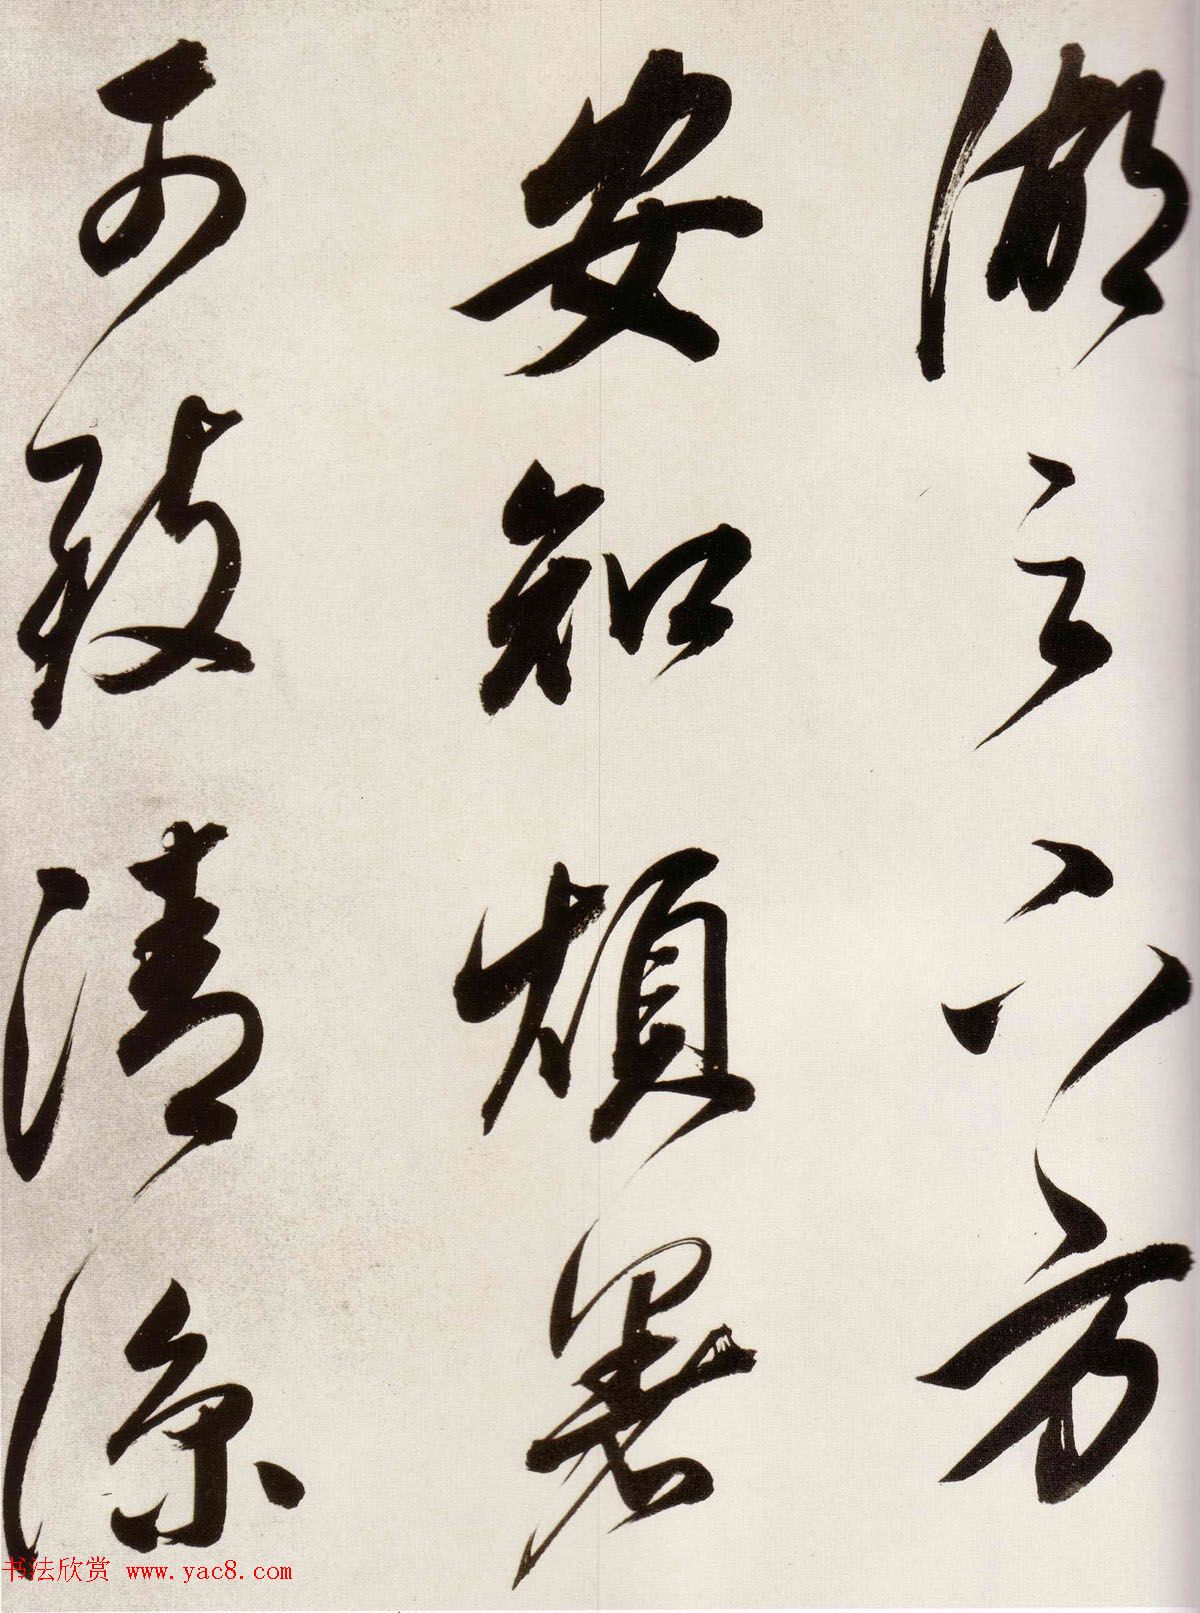 湖之六方
安知煩暑
可致清涼
书法欣赏 www.yac8.com